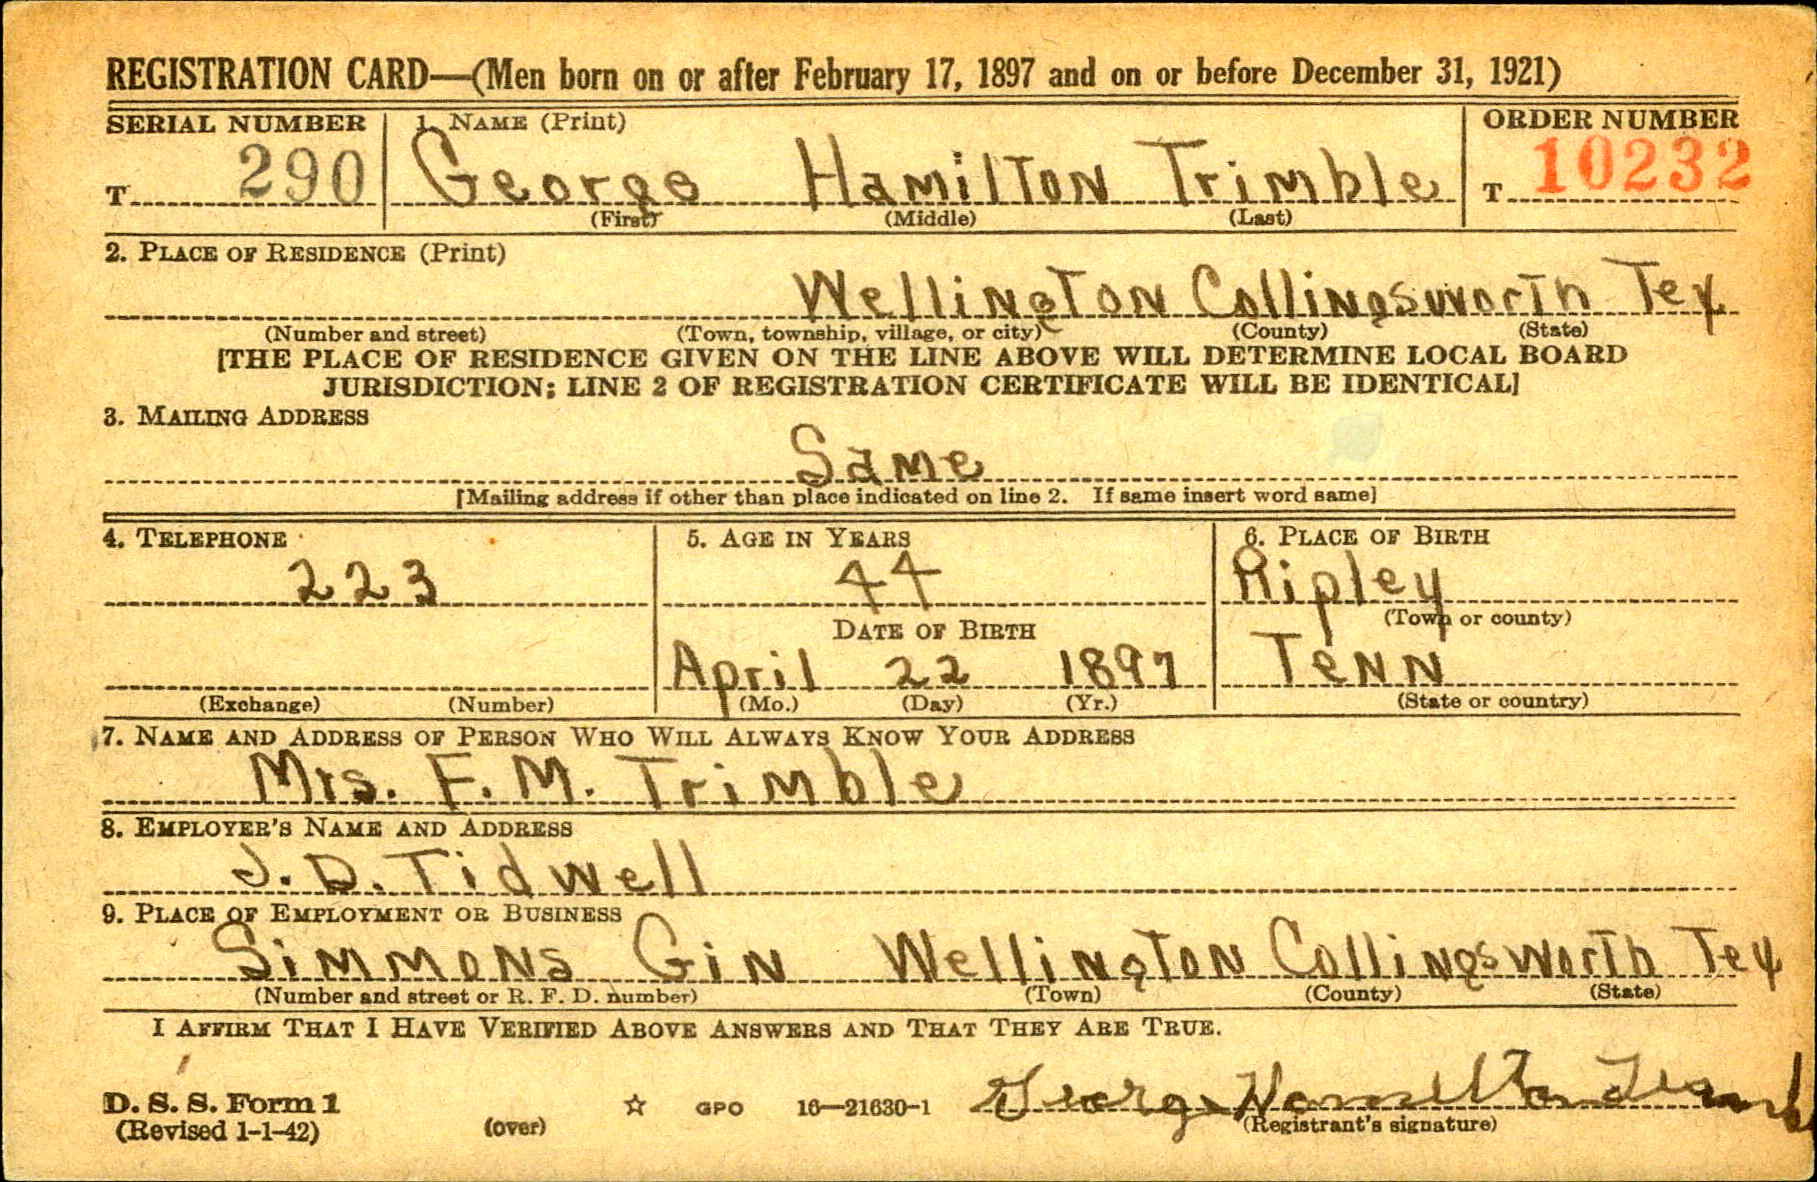 REGISTRATION CARD—(Men born on or after February 17, 1897 and on or before December 31, 1921)
SERIAL NUMBER 1. NAME (Print) ORDER NUMBER
T 290 George Hamilton Trimble T 10232
(First) (Middle) (Last)
2. PLACE OF RESIDENCE (Print)
Wellington Collingsworth Tex
(Number and street) (Town, township, village, or city) (County) (State)
[THE PLACE OF RESIDENCE GIVEN ON THE LINE ABOVE WILL DETERMINE LOCAL BOARD
JURISDICTION; LINE 2 OF REGISTRATION CERTIFICATE WILL BE IDENTICAL]
3. MAILING ADDRESS
Same
[Mailing address if other than place indicated on line 2. If same insert word same]
4. TELEPHONE 5. AGE IN YEARS 6. PLACE OF BIRTH
223 44 Ripley
(Town or county)
DATE OF BIRTH
April 22 1897 Tenn
(Exchange) (Number) (Mo.) (Day) (Yr.) (State or country)
7. NAME AND ADDRESS OF PERSON WHO WILL ALWAYS KNOW YOUR ADDRESS
Mrs. F. M. Trimble
8. EMPLOYER'S NAME AND ADDRESS
J. D. Tidwell
9. PLACE OF EMPLOYMENT OR BUSINESS
Simmons Gin Wellington Collingsworth Tex
(Number and street or R. F. D. number) (Town) (County) (State)
I AFFIRM THAT I HAVE VERIFIED ABOVE ANSWERS AND THAT THEY ARE TRUE.
D. S. S. Form 1 (over) ☆ GPO 16—21630-1 George Hamilton Trimble
(Revised 1-1-42) (Registrant's signature)